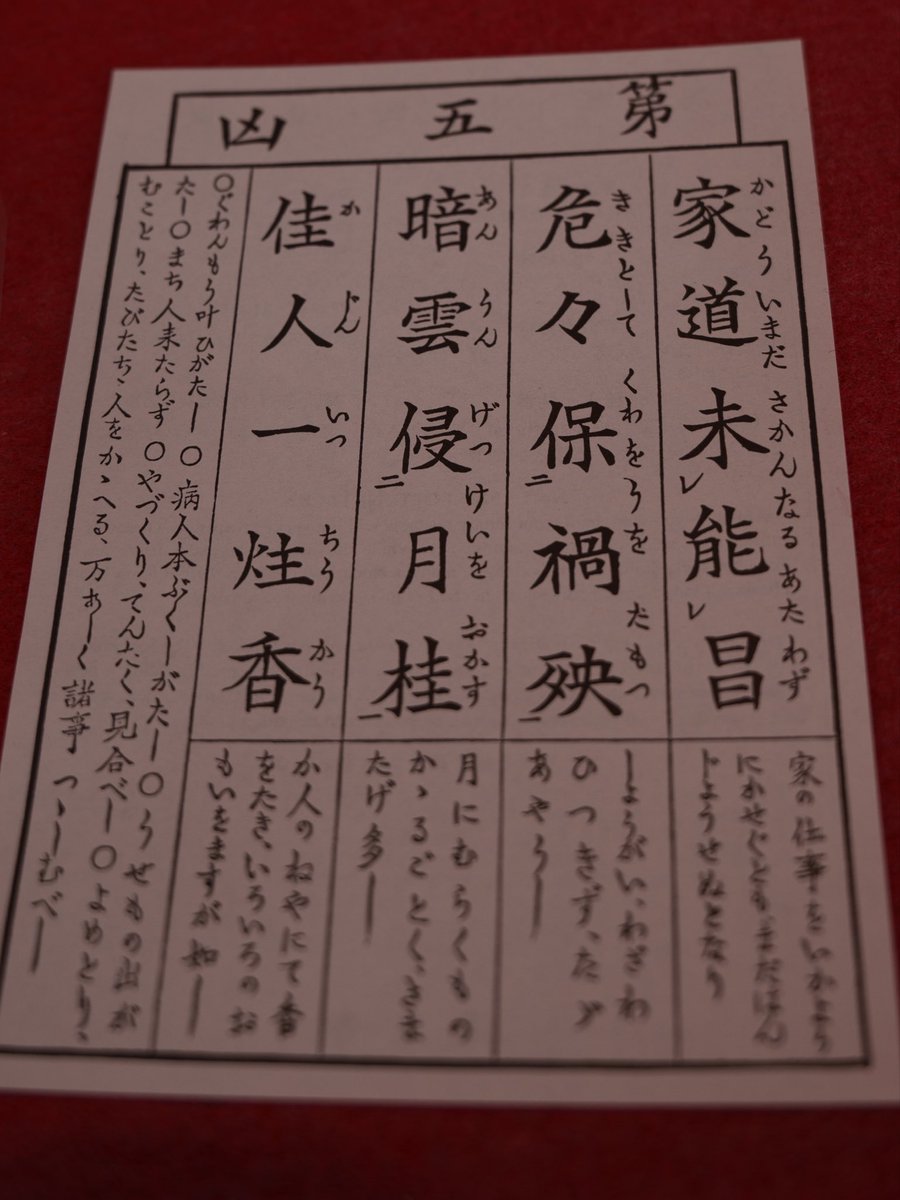 第五凶
家道未レ能レ昌
かどういまださかんなるあたわず
危々保二禍殃一
ききとしてくわをうをたもつ
暗雲侵二月桂一
あんうんげつけいをおかす
佳人一炷香
かじんいつちうかう
家の仕事をいかよう
にかせぐとも、まだはん
じようせぬとなり
しようがい、わざわ
ひつきず、たゞ
あやうし
月にむらくもの
かゝるごとく、さま
たげ多し
か人のねやにて香
をたき、いろいろのお
もいをますが如し
○ぐわんもう叶ひがたし○病人本ぶくしがたし○うせもの出が
たし○まち人来たらず○やづくり、てんたく、見合べし○よめとり、
むことり、たびたち、人をかゝへる、万あしく諸事つゝしむべし